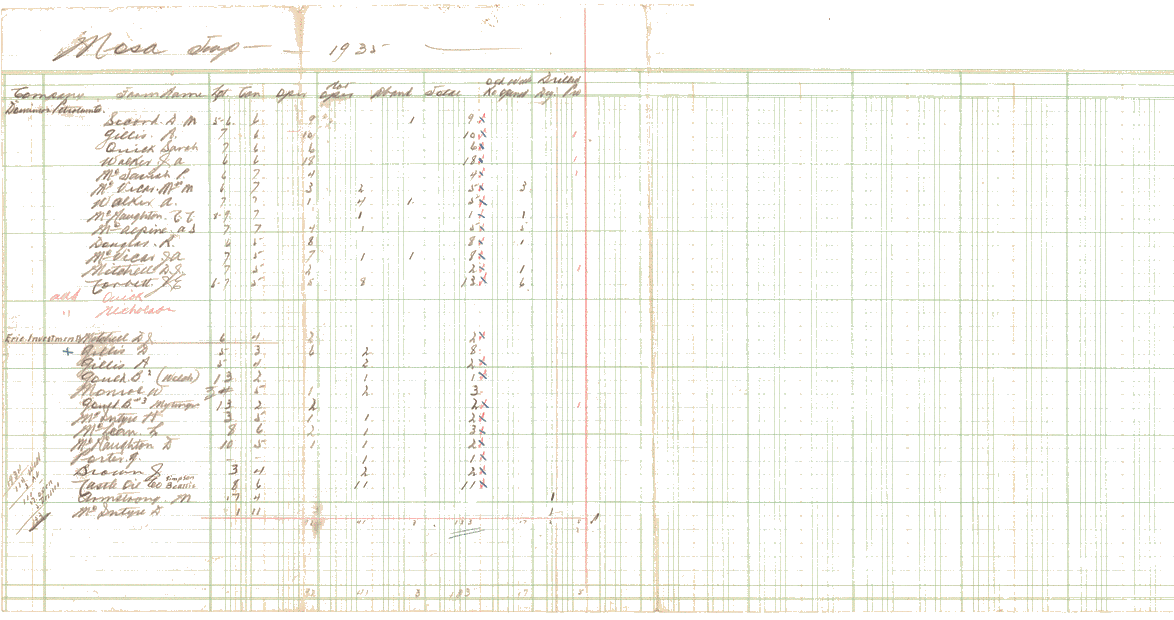 Mosa Twp — 1935
Company Farm Name Lot Con Oper Not Oper Aband Total Old Well Reopend Drilled Dry Pro
Dominion Petroleums.
D M 5-6 6 9 1 9 x
Gillis. R. 7 6 10 10 x 1
Quick Sarah 7 6 6 6 x
Walker J a 6 6 18 18 x 1
P. 6 7 4 4 x 1
McVicar. Mrs M 6 7 3 2 5 x 3
Walker a. 7 7 1 4 1 5 x
McNaughton. 7 1 1 x 1
McAlpine. a S 7 7 4 1 5 x 5
Douglas. R. 6 5 8 8 x 1
McVicar J a 7 5 7 1 1 8 x
Mitchell D. J. 7 5 2 2 x 1 1
Corbett. 6-7 5 5 8 13 x 6
add Quick
" Nicholson
Erie Investments Mitchell D J 6 4 2 2 x
+ Gillis D 5 3 6 2 8
Gillis A 5 4 2 2 x
Gould B. 2 (Welch) 13 2 1 1 x
Monroe W 5 1 2 3
Gould B. #3 13 2 2 2 x 1
McIntyre A 3 5 1 1 2 x
McLean L 8 6 2 1 3 x
McNaughton D 10 5 1 1 2 x
Porter J. - - 1 1 x
Brown J 3 4 2 2 x
Castle Oil Co Simpson Beattie 8 6 11 11 x
Armstrong. M 17 4 1
McIntyre D 1 11 1
92 41 3 133 17 2 5
92 41 3 133 17 5